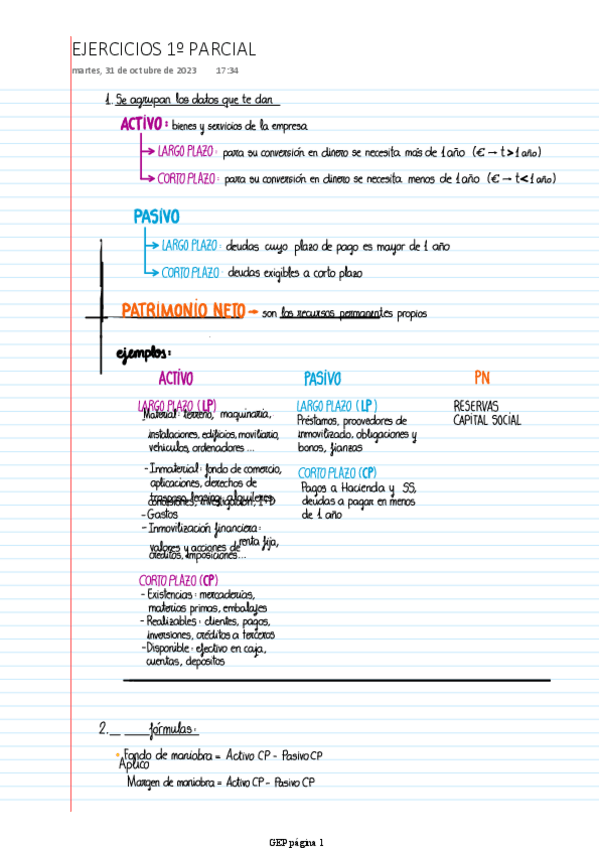 EJERCICIOS 1º PARCIAL
martes, 31 de octubre de 2023 17:34
1. Se agrupan los datos que te dan
ACTIVO: bienes y servicios de la empresa
LARGO PLAZO: para su conversión en dinero se necesita más de 1 año (€ → t > 1 año)
CORTO PLAZO: para su conversión en dinero se necesita menos de 1 año (€ → t < 1 año)
PASIVO
LARGO PLAZO: deudas cuyo plazo de pago es mayor de 1 año
CORTO PLAZO: deudas exigibles a corto plazo
PATRIMONIO NETO → son los recursos permanentes propios
ejemplos:
ACTIVO PASIVO PN
LARGO PLAZO (LP)
Material: terreno, maquinaria,
instalaciones, edificios, moviliario,
vehículos, ordenadores ...
- Inmaterial: fondo de comercio,
aplicaciones, derechos de
traspaso, leasing, alquileres,
concesiones, investigación, I+D
- Gastos
- Inmovilización financiera:
valores y acciones de renta fija,
créditos, imposiciones...
CORTO PLAZO (CP)
- Existencias: mercaderías,
materias primas, embalajes
- Realizables: clientes, pagos,
inversiones, créditos a terceros
- Disponible: efectivo en caja,
cuentas, depositos
LARGO PLAZO (LP)
Préstamos, proovedores de
inmovilizado, obligaciones y
bonos, fianzas
CORTO PLAZO (CP)
Pagos a Hacienda y SS,
deudas a pagar en menos
de 1 año
RESERVAS
CAPITAL SOCIAL
2. fórmulas:
Fondo de maniobra = Activo CP - Pasivo CP
Aplico
Margen de maniobra = Activo CP - Pasivo CP
GEP página 1